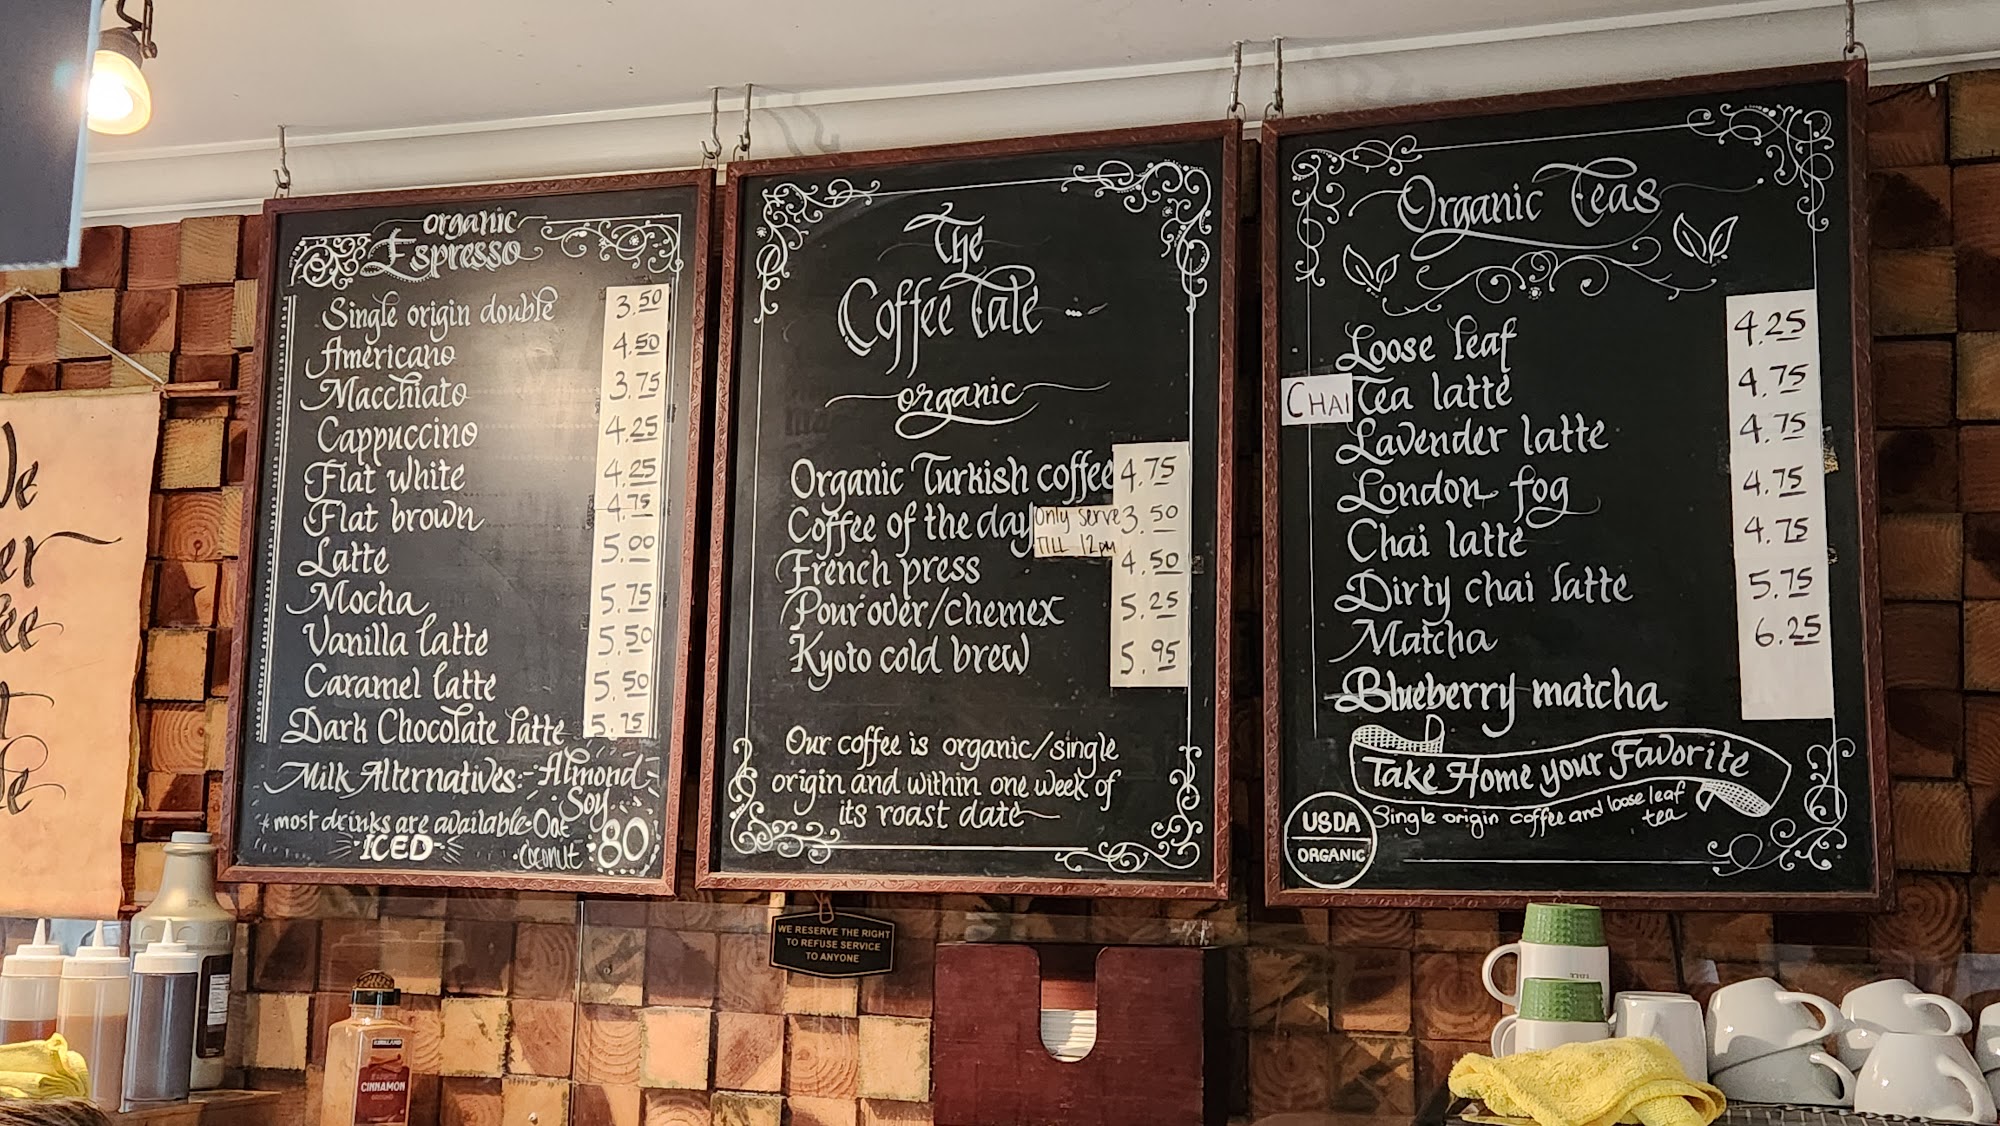 organic
Espresso
Single origin double 3.50
Americano 4.50
Macchiato 3.75
Cappuccino 4.25
Flat white 4.25
Flat brown 4.75
Latte 5.00
Mocha 5.75
Vanilla latte 5.50
Caramel latte 5.50
Dark Chocolate latte 5.75
Milk Alternatives:- Almond
Soy
*most drinks are available Oat
ICED
Coconut 80
The
Coffee Tale ...
organic
Organic Turkish coffee 4.75
Coffee of the day only serve 3.50
TILL 12pm
French press 4.50
Pour over/chemex 5.25
Kyoto cold brew 5.95
Our coffee is organic/single
origin and within one week of
its roast date
Organic Teas
Loose leaf 4.25
CHAI Tea latte 4.75
Lavender latte 4.75
London fog 4.75
Chai latte 4.75
Dirty chai latte 5.75
Matcha 6.25
Blueberry matcha
Take Home your Favorite
Single origin coffee and loose leaf
tea
USDA
ORGANIC
WE RESERVE THE RIGHT
TO REFUSE SERVICE
TO ANYONE
KIRKLAND
CINNAMON